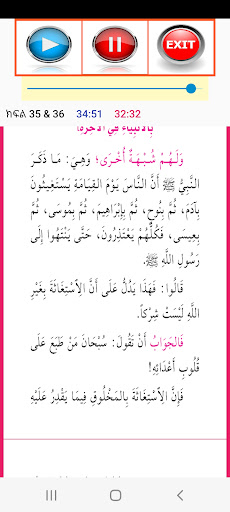 EXIT
ክፍል 35 & 36 34:51 32:32
بِالأَنْبِيَاءِ فِي الآخِرَةِ
وَلَهُمْ شُبْهَةٌ أُخْرَى؛ وَهِيَ: مَا ذَكَرَ
النَّبِيُّ ﷺ أَنَّ النَّاسَ يَوْمَ القِيَامَةِ يَسْتَغِيثُونَ
بِآدَمَ، ثُمَّ بِنُوحٍ، ثُمَّ بِإِبْرَاهِيمَ، ثُمَّ بِمُوسَى، ثُمَّ
بِعِيسَى، فَكُلُّهُمْ يَعْتَذِرُونَ، حَتَّى يَنْتَهُوا إِلَى
رَسُولِ اللَّهِ ﷺ.
قَالُوا: فَهَذَا يَدُلُّ عَلَى أَنَّ الِاسْتِغَاثَةَ بِغَيْرِ
اللَّهِ لَيْسَتْ شِرْكاً.
فَالجَوَابُ أَنْ تَقُولَ: سُبْحَانَ مَنْ طَبَعَ عَلَى
قُلُوبِ أَعْدَائِهِ!
فَإِنَّ الِاسْتِغَاثَةَ بِالمَخْلُوقِ فِيمَا يَقْدِرُ عَلَيْهِ